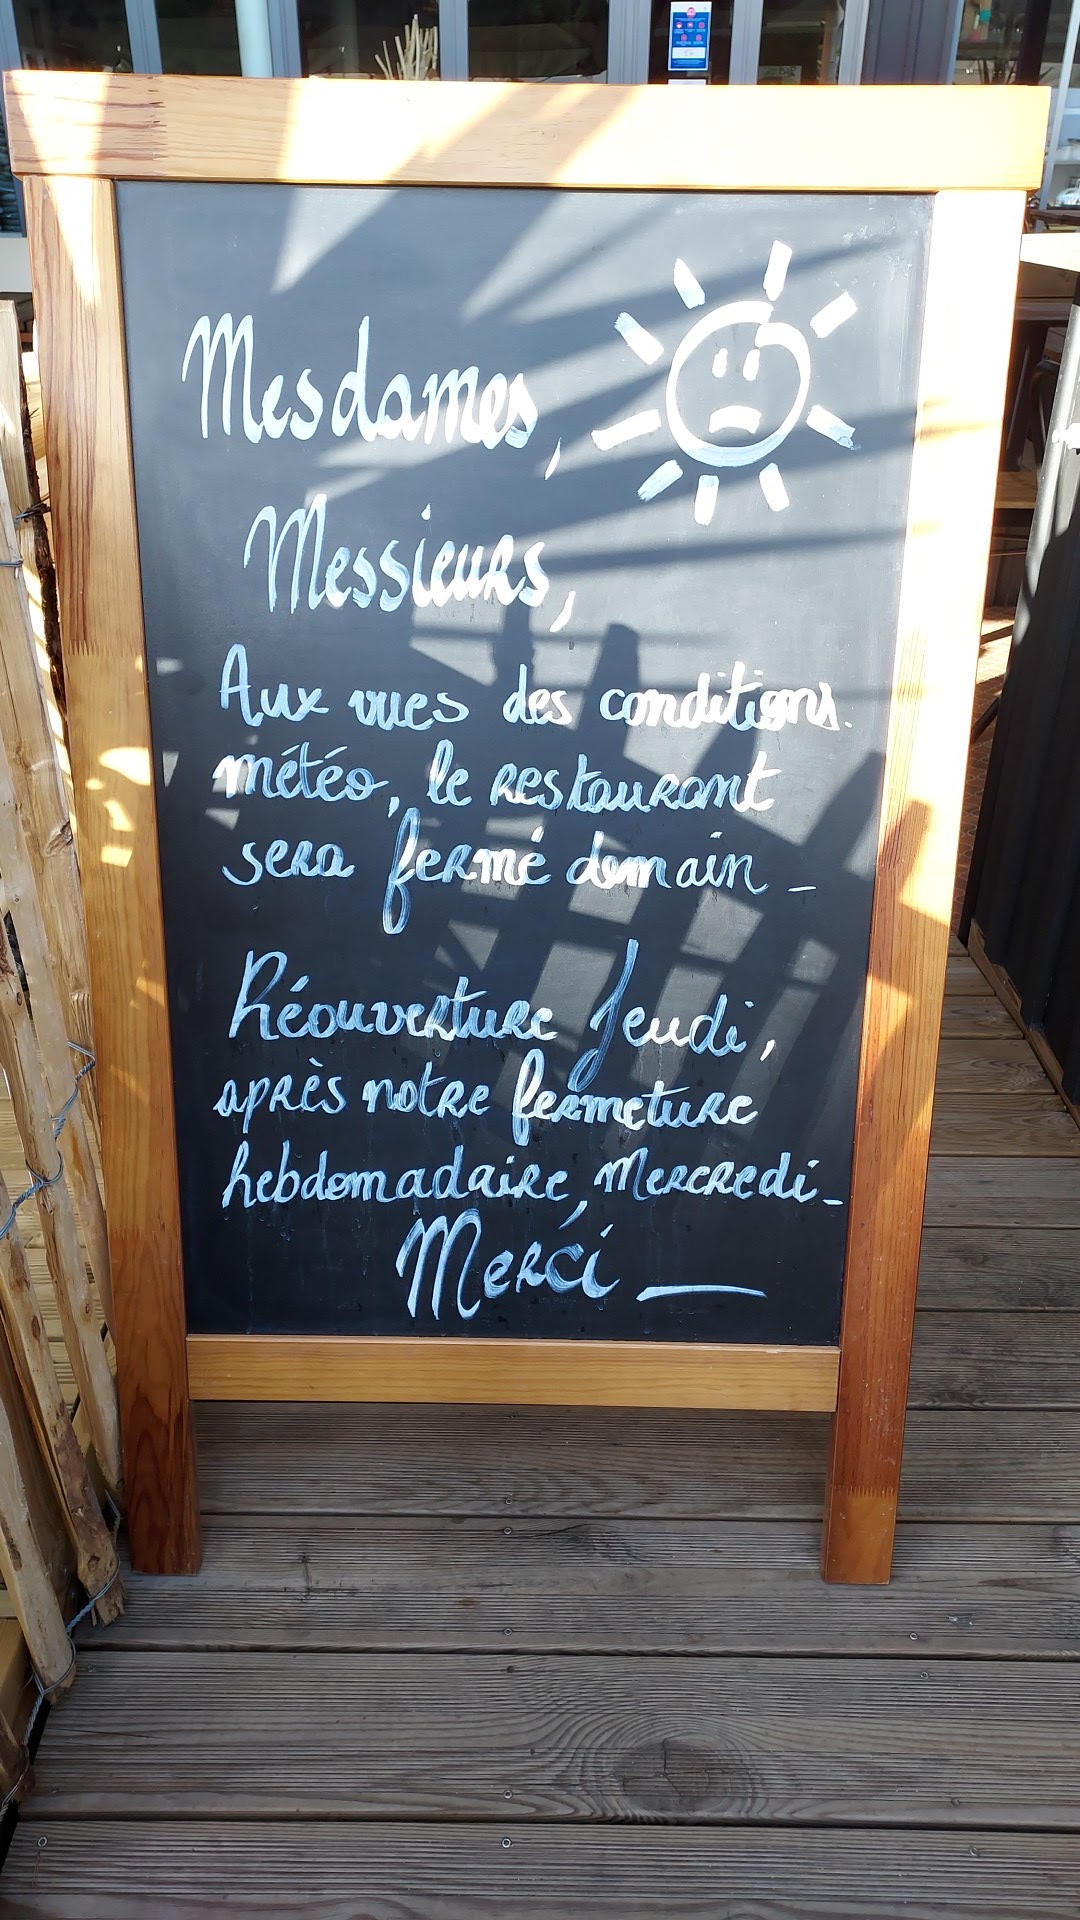 Mesdames,
Messieurs,
Aux vues des conditions
météo, le restaurant
sera fermé demain -
Réouverture Jeudi,
après notre fermeture
hebdomadaire, Mercredi -
Merci -